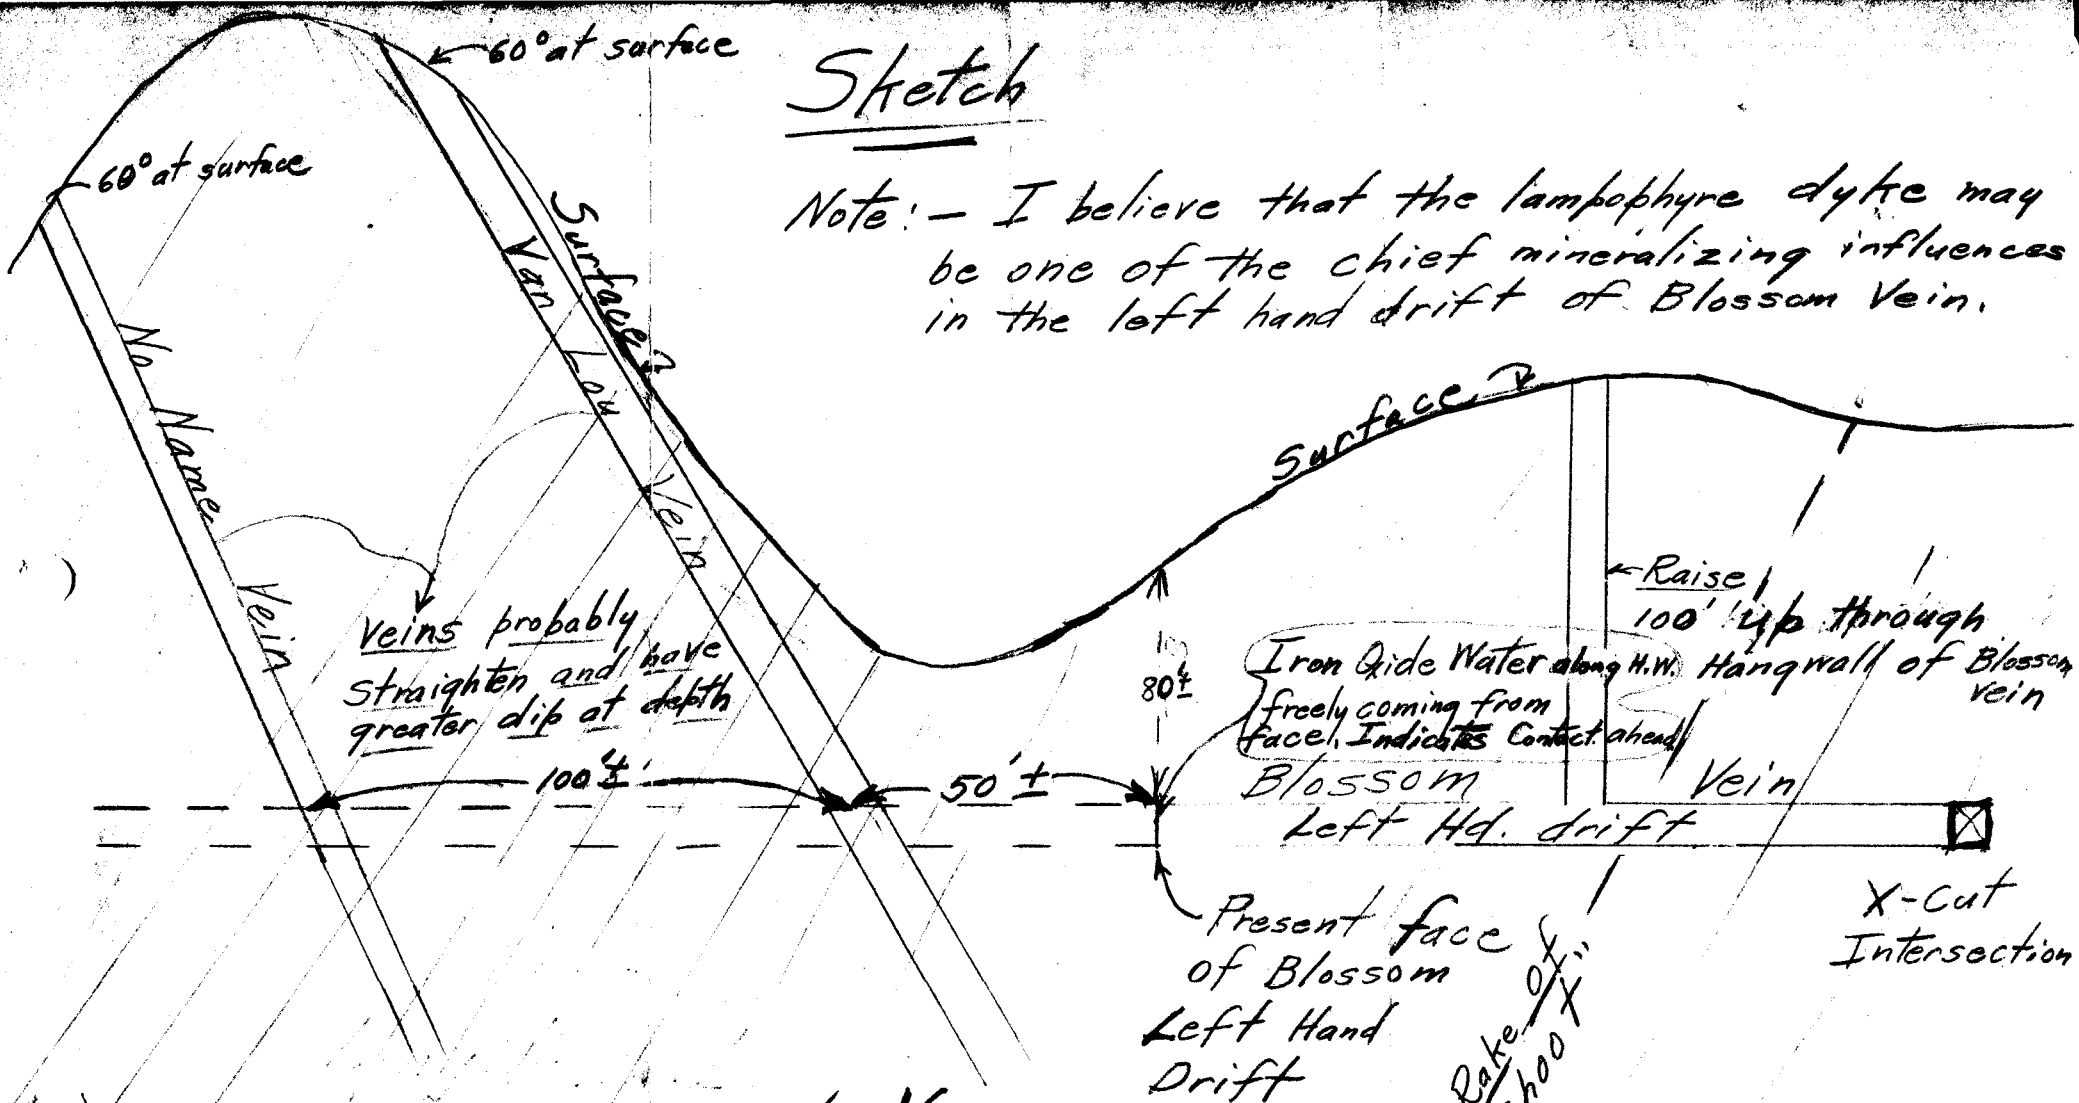 60° at surface
Sketch
60° at surface
Note:- I believe that the lampophyre dyke may
be one of the chief mineralizing influences
in the left hand drift of Blossom Vein.
No Name Vein
Van Lou Vein
Surface
Surface
Veins probably
straighten and have
greater dip at depth
100' ±
50' ±
80' ±
Raise
100' up through
Hangwall of Blossom
vein
Iron Oxide Water along H.W.
freely coming from
face. Indicates Contact ahead
Blossom Vein
Left Hd. drift
X-Cut
Intersection
Present face
of Blossom
Left Hand
Drift
Rake of